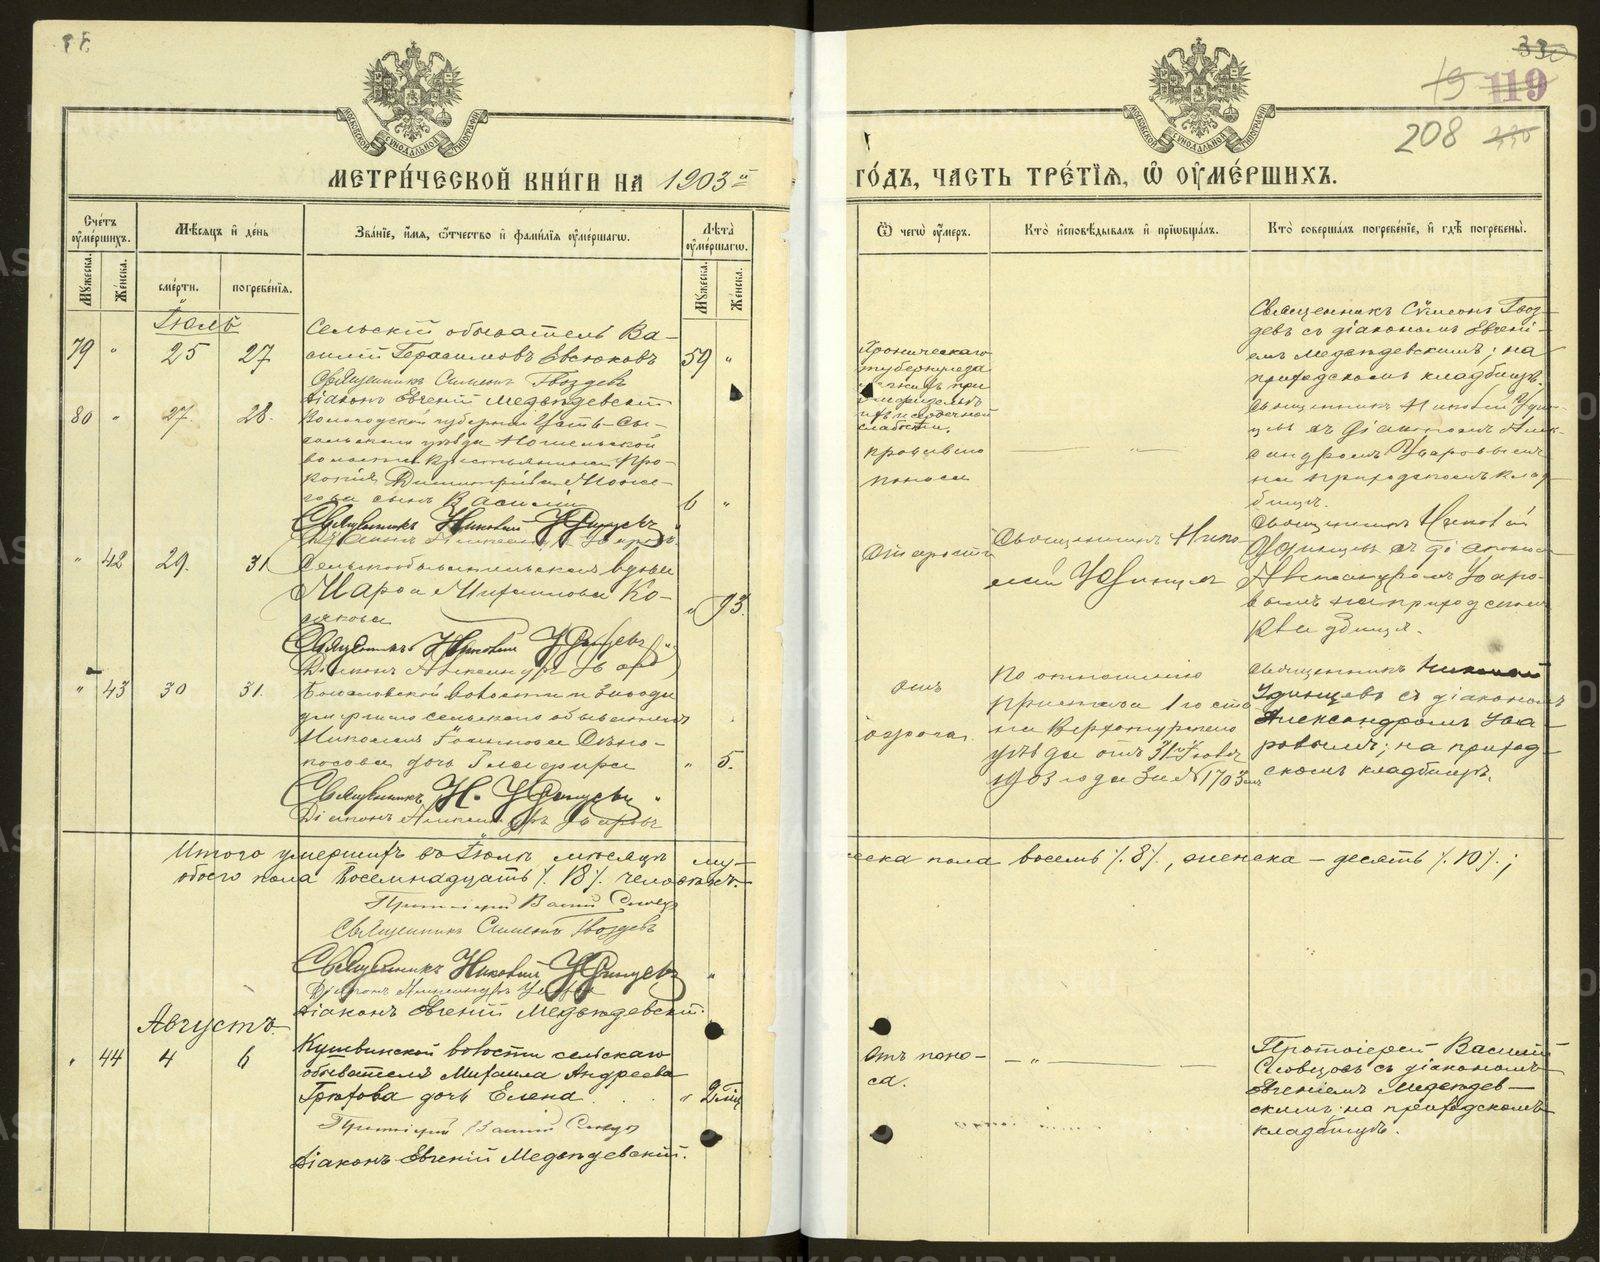 330
19 119
208
МОСКОВСКОЙ СѴНОДАЛЬНОЙ ТИПОГРАФІИ
МОСКОВСКОЙ СѴНОДАЛЬНОЙ ТИПОГРАФІИ
МЕТРИ́ЧЕСКОЙ КНИ́ГИ НА 1903й
ГО́ДЪ, ЧАСТЬ ТРЕ́ТІѦ, Ѿ ОУ҆МЕ́РШИХЪ.
Сче́тъ оу҆ме́ршихъ.
Мужеска.
Женска.
Мѣ́сяцъ и҆ де́нь
сме́рти.
погребе́нїѧ.
Зва́нїе, и҆́мѧ, ѻ҆́тчество и҆ фамилїѧ оу҆ме́ршагѡ.
Лѣ́та оу҆ме́ршагѡ.
Мужеска.
Женска.
Ѿ чегѡ̀ оу҆́меръ.
Кто̀ и҆сповѣ́дывалъ и҆ прїѡбща́лъ.
Кто̀ соверша́лъ погребе́нїе, и҆ гдѣ̀ погребены̀.
Іюль
79 " 25 27
Сельскій обыватель Ва-
силій Герасимовъ Евсюковъ 59 "
Священникъ Симеонъ Гвоздевъ
Діаконъ Евгеній Медвѣдевскій
Хроническаго
туберкулеза
слабости.
Священникъ Симеонъ Гвоз-
девъ съ діакономъ Евгені-
емъ Медвѣдевскимъ; на
приходскомъ кладбищѣ.
80 " 27. 28.
Вологодской губерніи Усть-Сы-
сольскаго уѣзда
волости крестьянина Про-
копія Димитріева
сынъ Василій 6 "
Священникъ Николай Удинцевъ
кроваваго
поноса
"
Священникъ Николай Удин-
цевъ съ діакономъ Алек-
сандромъ Уваровымъ
на приходскомъ клад-
бищѣ.
" 42 29. 31
Сельскообывательская вдова
Марѳа Михаилова Ко-
" 93.
Священникъ Николай Удинцевъ
Діаконъ Александръ Увар
Отъ старости
Священникъ Нико-
лай Удинцевъ
Священникъ Николай
Удинцевъ съ діакономъ
Александромъ Уваро-
вымъ на приходскомъ
кладбищѣ.
" 43 30 31.
волости и завода
умершаго сельскаго обывателя
Николая
дочь Глафира " 5.
Священникъ Н. Удинцевъ
Діаконъ Александръ Уваровъ
отъ
ожога.
По отношенію
пристава 1го ста-
на Верхотурскаго
уѣзда отъ 31 Іюля
1903 года за № 1703
Священникъ Николай
Удинцевъ съ діакономъ
Александромъ Ува-
ровымъ; на приход-
скомъ кладбищѣ.
Итого умершихъ въ Іюлѣ мѣсяцѣ му-
жеска пола восемь /.8/., женска – десять /.10/.;
обоего пола Восемнадцать /.18/. человѣкъ.
Протоіерей Василій Словцовъ
Священникъ Симеонъ Гвоздевъ
Священникъ Николай Удинцевъ
Діаконъ Александръ Уваровъ
Діаконъ Евгеній Медвѣдевскій.
Августъ
" 44 4 6
Кушвинской волости сельскаго
обывателя Михаила Андреева
Грехова дочь Елена " 2 мц
Протоіерей Василій Словцовъ
Діаконъ Евгеній Медвѣдевскій.
Отъ поно-
са.
"
Протоіерей Василій
Словцовъ съ діакономъ
Евгеніемъ Медвѣдев-
скимъ; на приходскомъ
кладбищѣ.